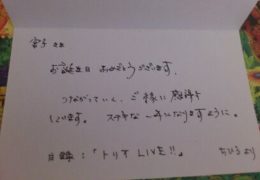 宮子さま
お誕生日 おめでとうございます。
つながっていく、ご縁に感謝を
しています。 ステキな一年になりますように。
目標:「トリオ LIVE!!」
ちひろより